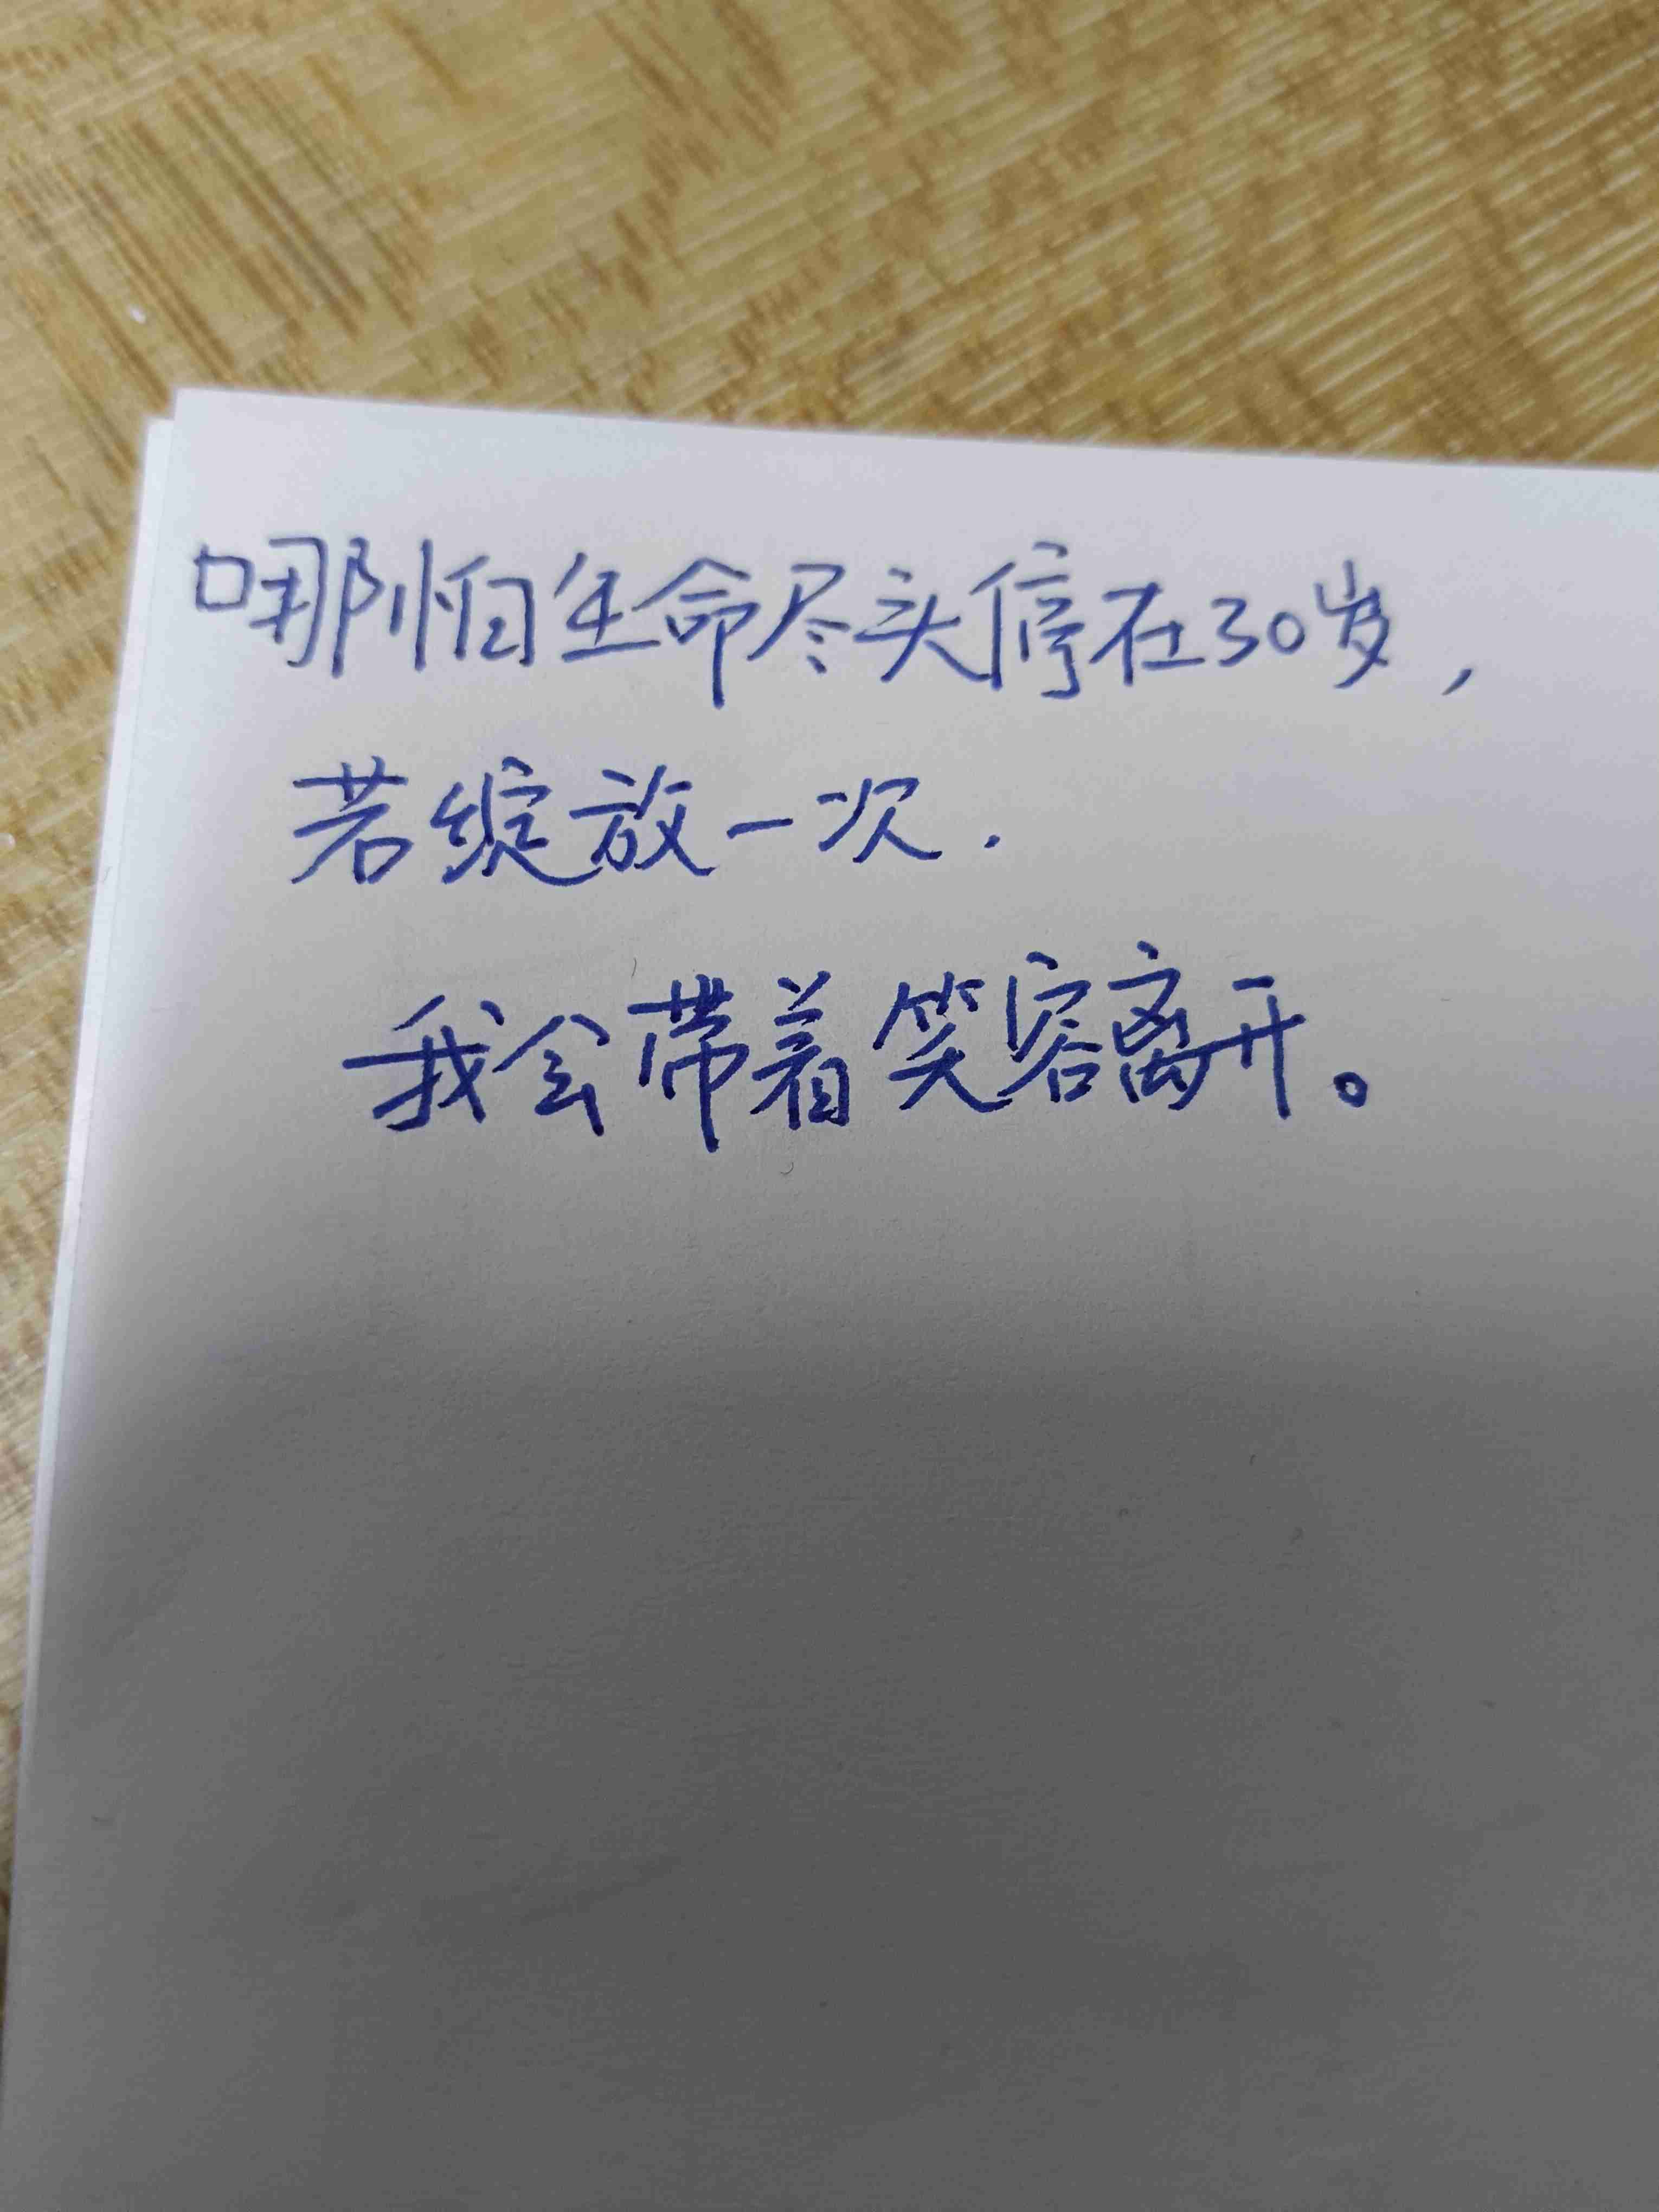 哪怕生命尽头停在30岁，
若绽放一次.
我会带着笑容离开。